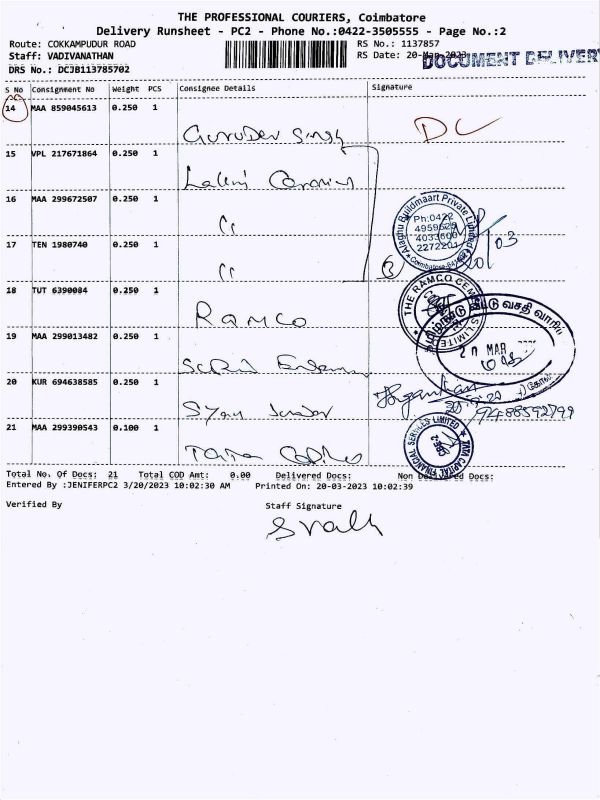 THE PROFESSIONAL COURIERS, Coimbatore
Delivery Runsheet - PC2 - Phone No.:0422-3505555 - Page No.:2
Route: COKKAMPUDUR ROAD
RS No.: 1137857
Staff: VADIVANATHAN
RS Date: 20-Mar-2023
DOCUMENT DELIVERY
DRS No.: DCJB113785702
S No Consignment No Weight PCS Consignee Details Signature
14 MAA 859045613 0.250 1
GuruDev Singh
DC
15 VPL 217671864 0.250 1
Lakmi
16 MAA 299672507 0.250 1
17 TEN 1980740 0.250 1
Alaghu Buildmaart Private Limited
Ph:0422
4959629
4033606
2272201
Coimbatore
18 TUT 6390084 0.250 1
RAMCO
THE RAMCO CEMENTS LIMITED
19 MAA 299013482 0.250 1
வீட்டு வசதி வாரிய
MAR
20 KUR 694638585 0.250 1
21 MAA 299390543 0.100 1
Tata
TATA CAPITAL FINANCIAL SERVICES LIMITED
CBE-2
Total No. Of Docs: 21 Total COD Amt: 0.00 Delivered Docs: Non Delivered Docs:
Entered By :JENIFERPC2 3/20/2023 10:02:30 AM Printed On: 20-03-2023 10:02:39
Verified By Staff Signature